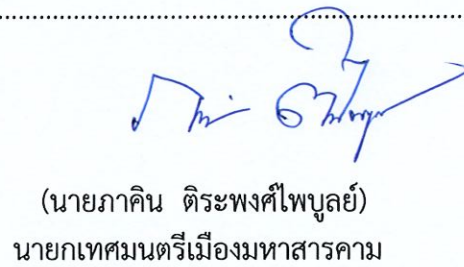 (นายภาคิน ติระพงศ์ไพบูลย์)
นายกเทศมนตรีเมืองมหาสารคาม